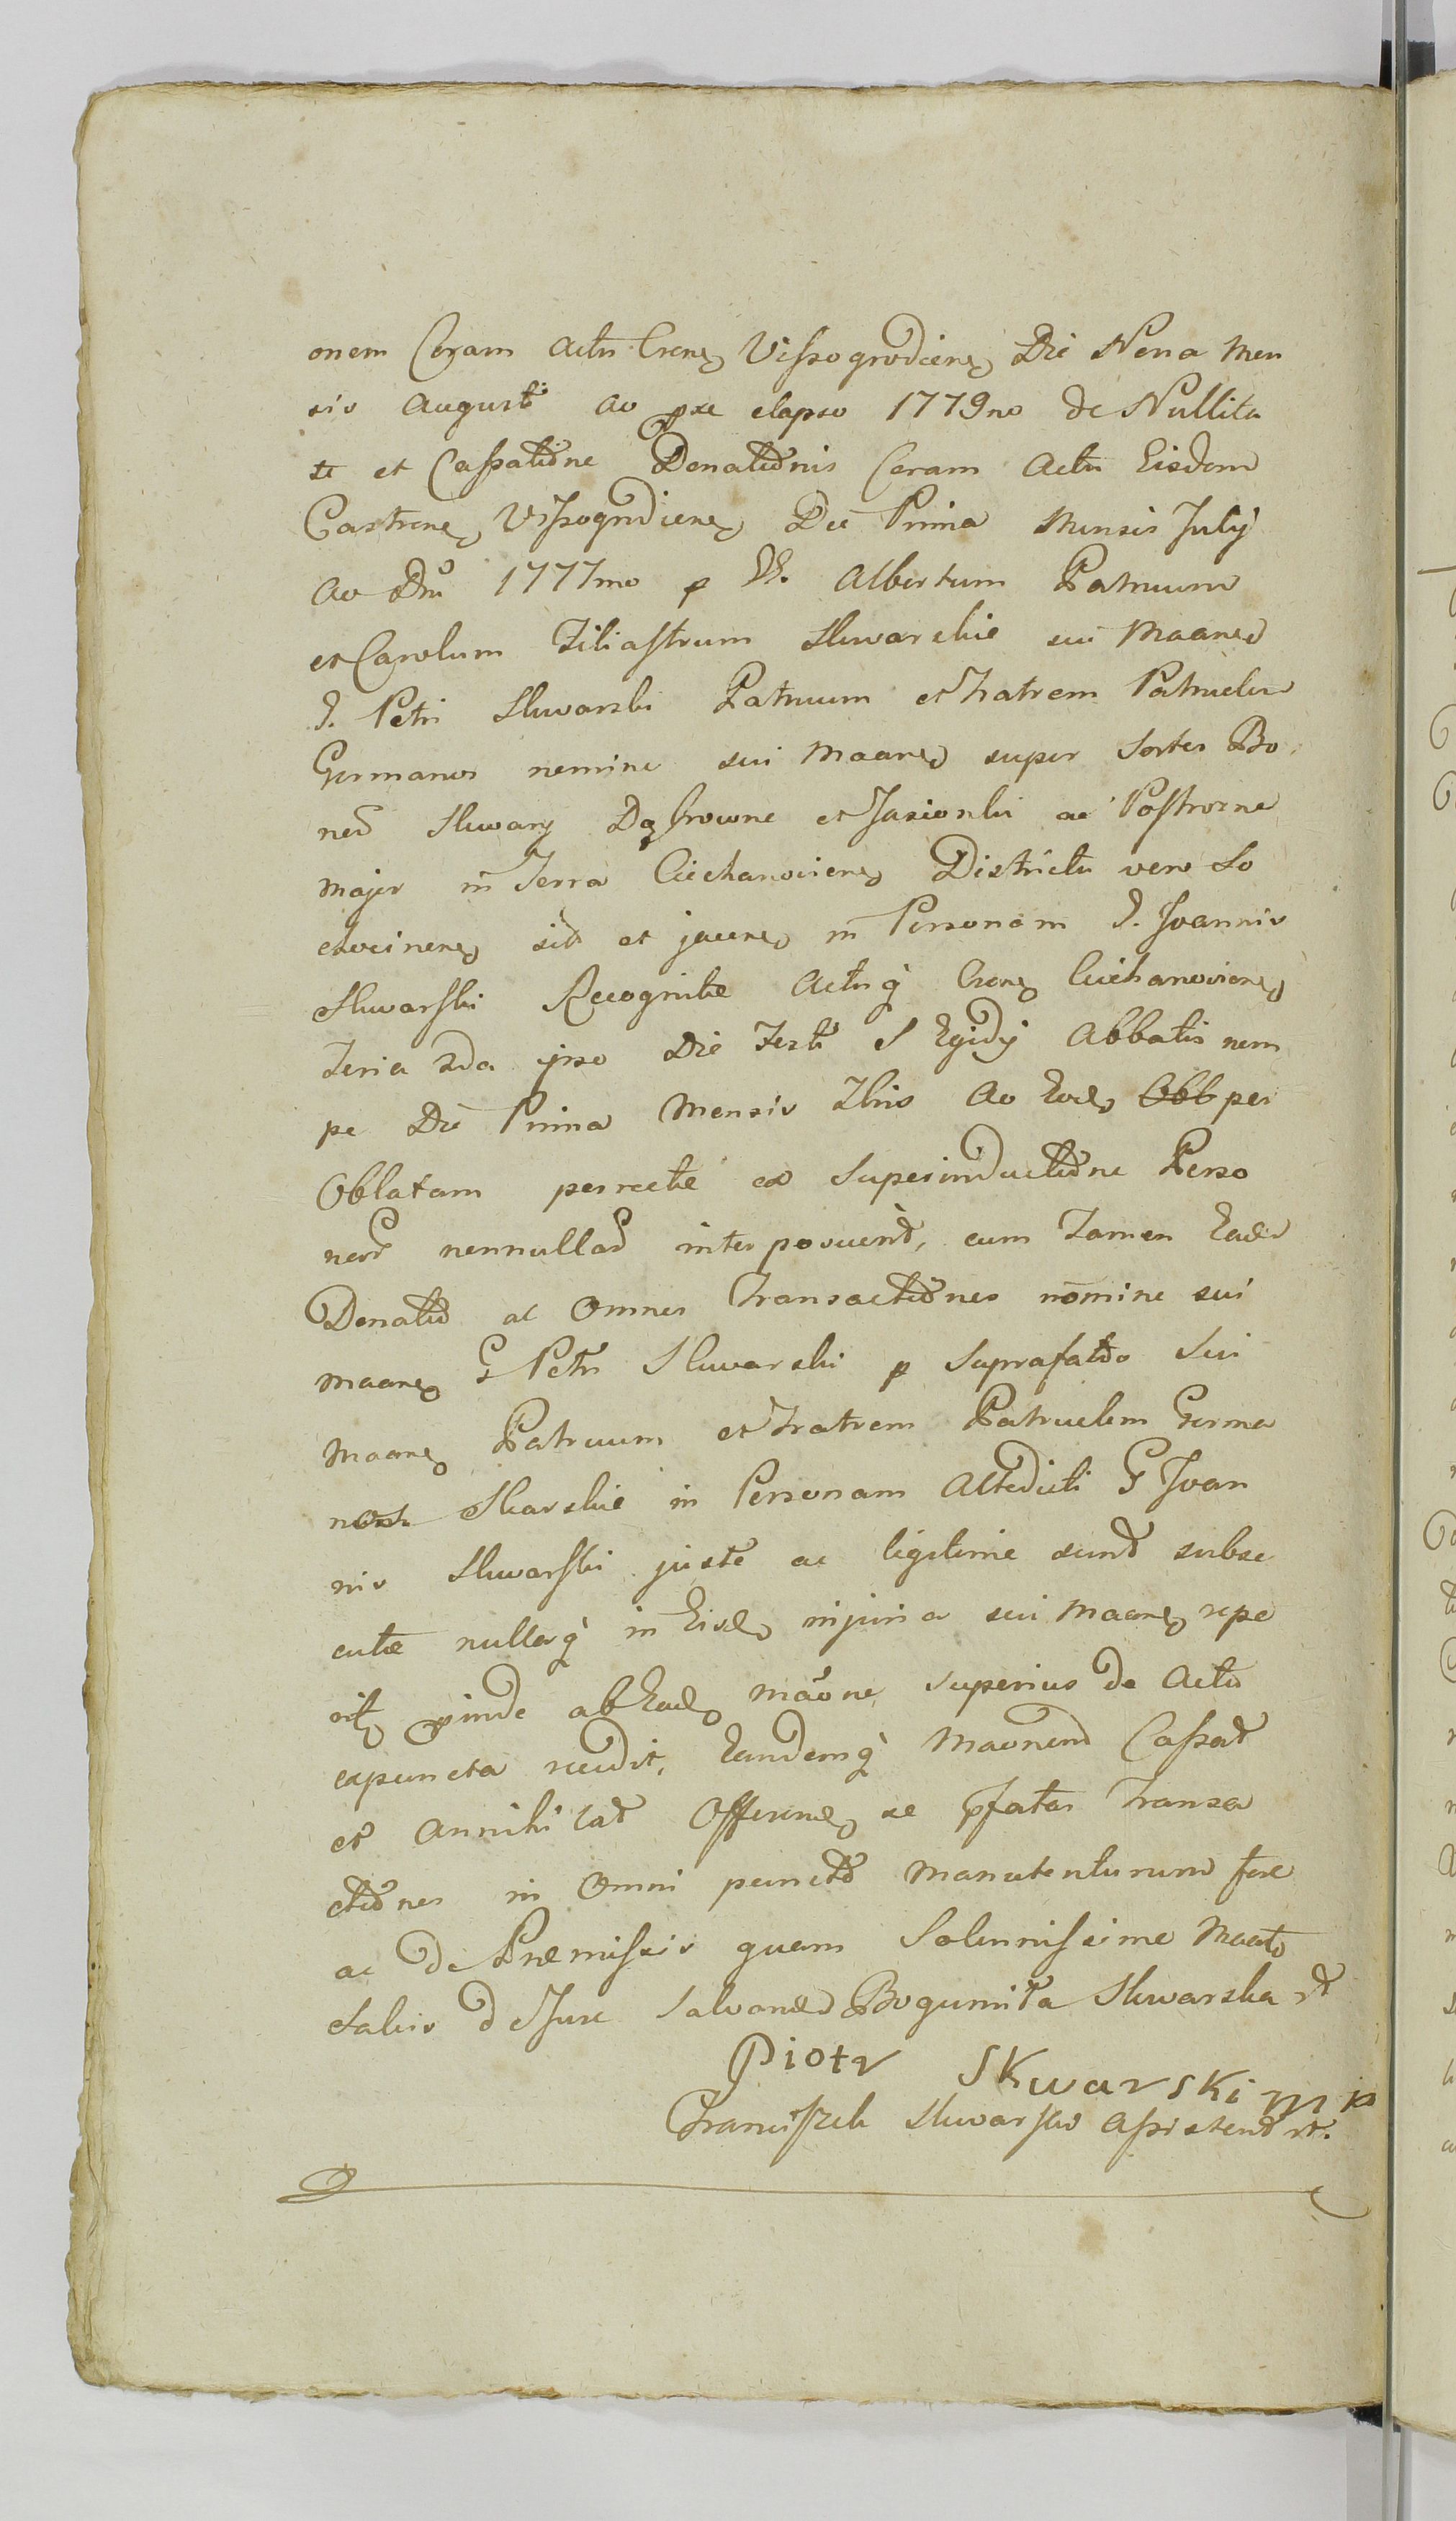 onem Coram Actu Crens Vissogrodiens Die Nona Men
sis Augusti Ao pxe elapso 1779no de Nullita
te et Cassatione Donationis Coram Actu Eisdem
Castrens Vissogrodiens Die Prima Mensis July
Ao Dni 1777mo p Albertum Patruum
et Carolum Filiastrum Skwarskie sui Maanes
G. Petri Skwarski Patruum et Fratrem Patruelem
Germanos nomine sui Maanes super Sortes Bo
norum Skwary Dąbrowne et Jasionki ac Postrozne
major in Terra Ciechanoviens Districtu vero So
chocinens sit et jacens in Personam G. Joannis
Skwarski Recognitae Actuq Crens Ciechanoviens
Feria 2da ipso Die Festi S Egidy Abbatis nem
pe Die Prima Mensis 7bris Ao Eod Obb per
Oblatam perrectae ex Superinductione Perso
narum nonnullarum interposuerit, cum Tamen Eadem
Donatio ac Omnes Transactiones nomine sui
Maanes G Petri Skwarski p Suprafatos Sui
Maanes Patruum et Fratrem Patruelem Germa
nos Skarskie in Personam Actedicti G Joan
nis Skwarski juste ac legitime sunt subse
cutae nullaq in Eisd injuria sui Maanes repe
rit proinde ab Ead maone superius de Actu
expuncta recedit, Eandemq Maonem Cassat
et Annihilat Offerens se pfatas Transa
ctiones in Omni puncto Manutenturum fore
ac de Praemissis quam Solennissime Maatr
Salvis de Jure Salvandis Bogumiła Skwarska
Piotr Skwarski mp
Franciszek Skwarski Assistens